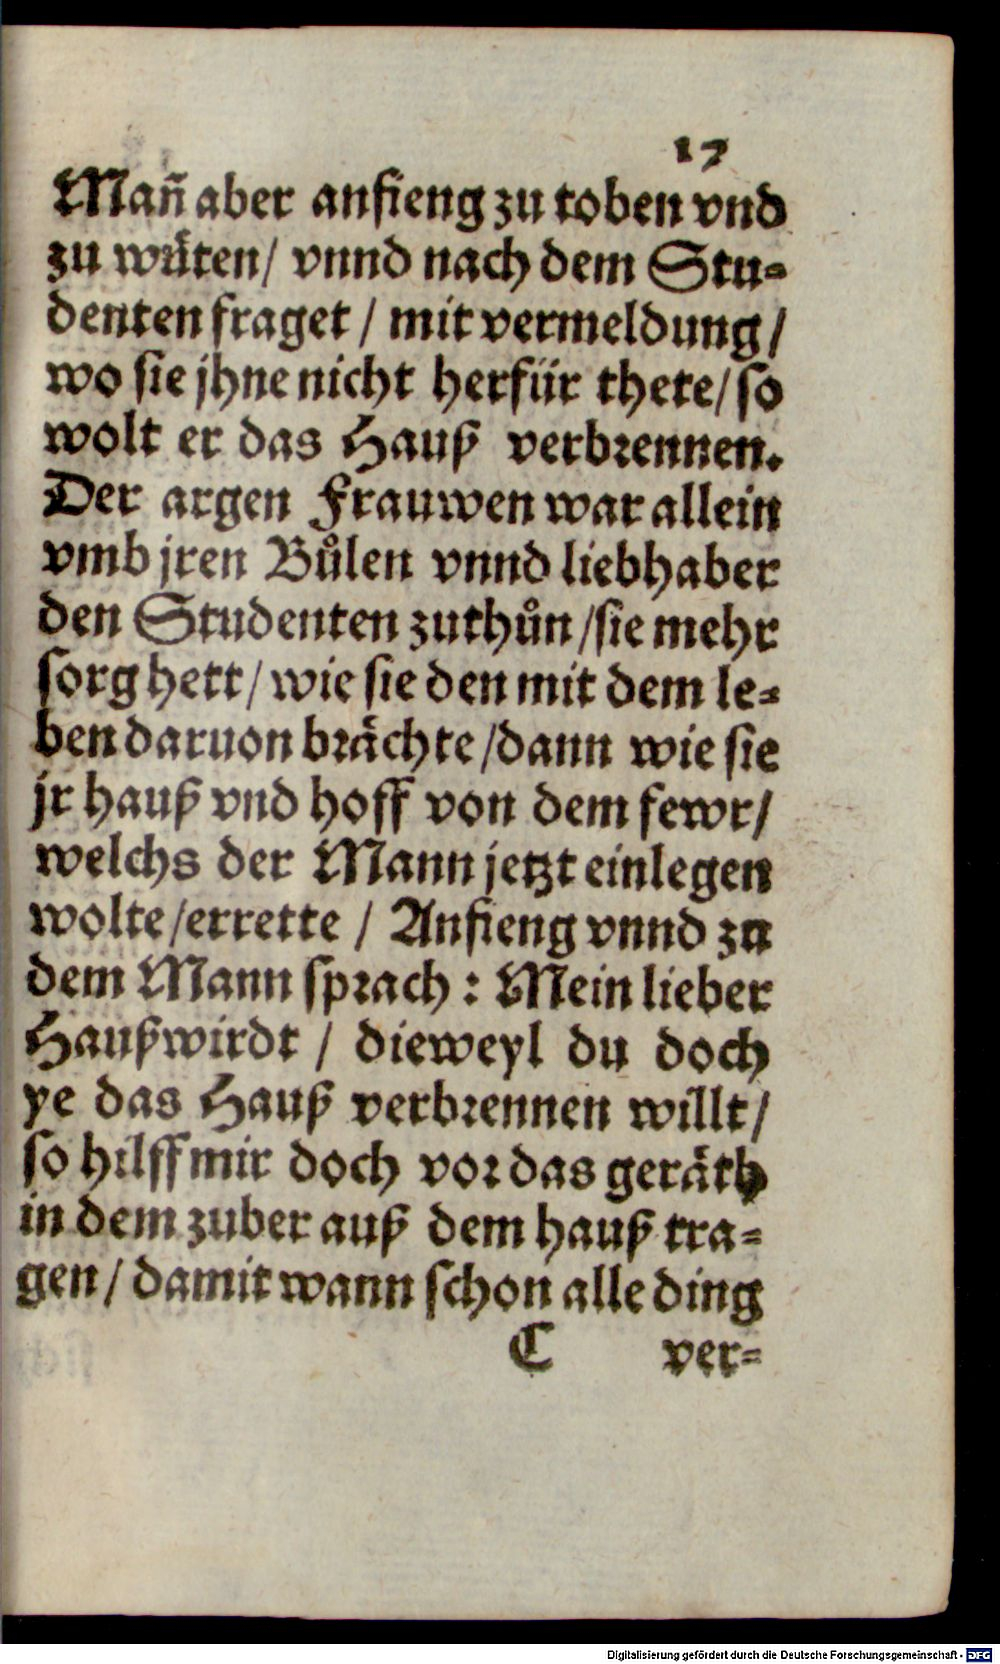 17
Mañ aber anfieng zu toben vnd
zu wuͤten / vnnd nach dem Stu-
denten fraget / mit vermeldung /
wo sie jhne nicht herfür thete / so
wolt er das Hauß verbrennen.
Der argen Frauwen war allein
vmb jren Bůlen vnnd liebhaber
den Studenten zuthůn / sie mehr
sorg hett / wie sie den mit dem le-
ben daruon braͤchte / dann wie sie
jr hauß vnd hoff von dem fewr /
welchs der Mann jetzt einlegen
wolte / errette / Anfieng vnnd zu
dem Mann sprach : Mein lieber
Haußwirdt / dieweyl du doch
ye das Hauß verbrennen willt /
so hilff mir doch vor das geraͤth
in dem zuber auß dem hauß tra-
gen / damit wann schon alle ding
C ver-
Digitalisierung gefördert durch die Deutsche Forschungsgemeinschaft - DFG